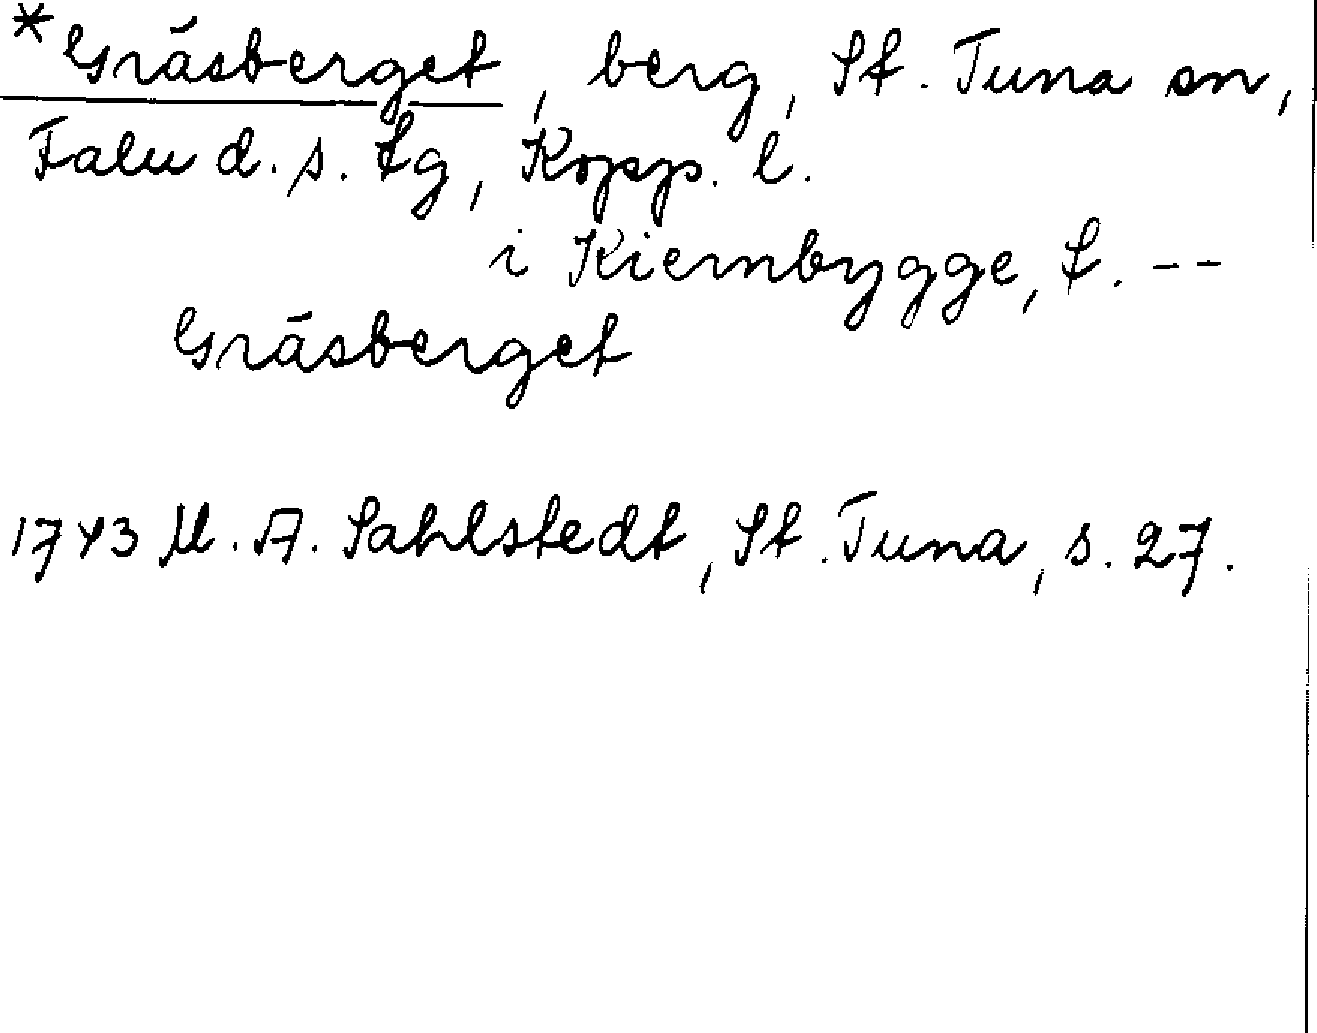 *Gräsberget, berg, St. Tuna sn,
Falu d. s. tg, Kopp. l.
i Kiernbygge, t. --
Gräsberget
1743 M. A. Sahlstedt, St. Tuna, s. 27.